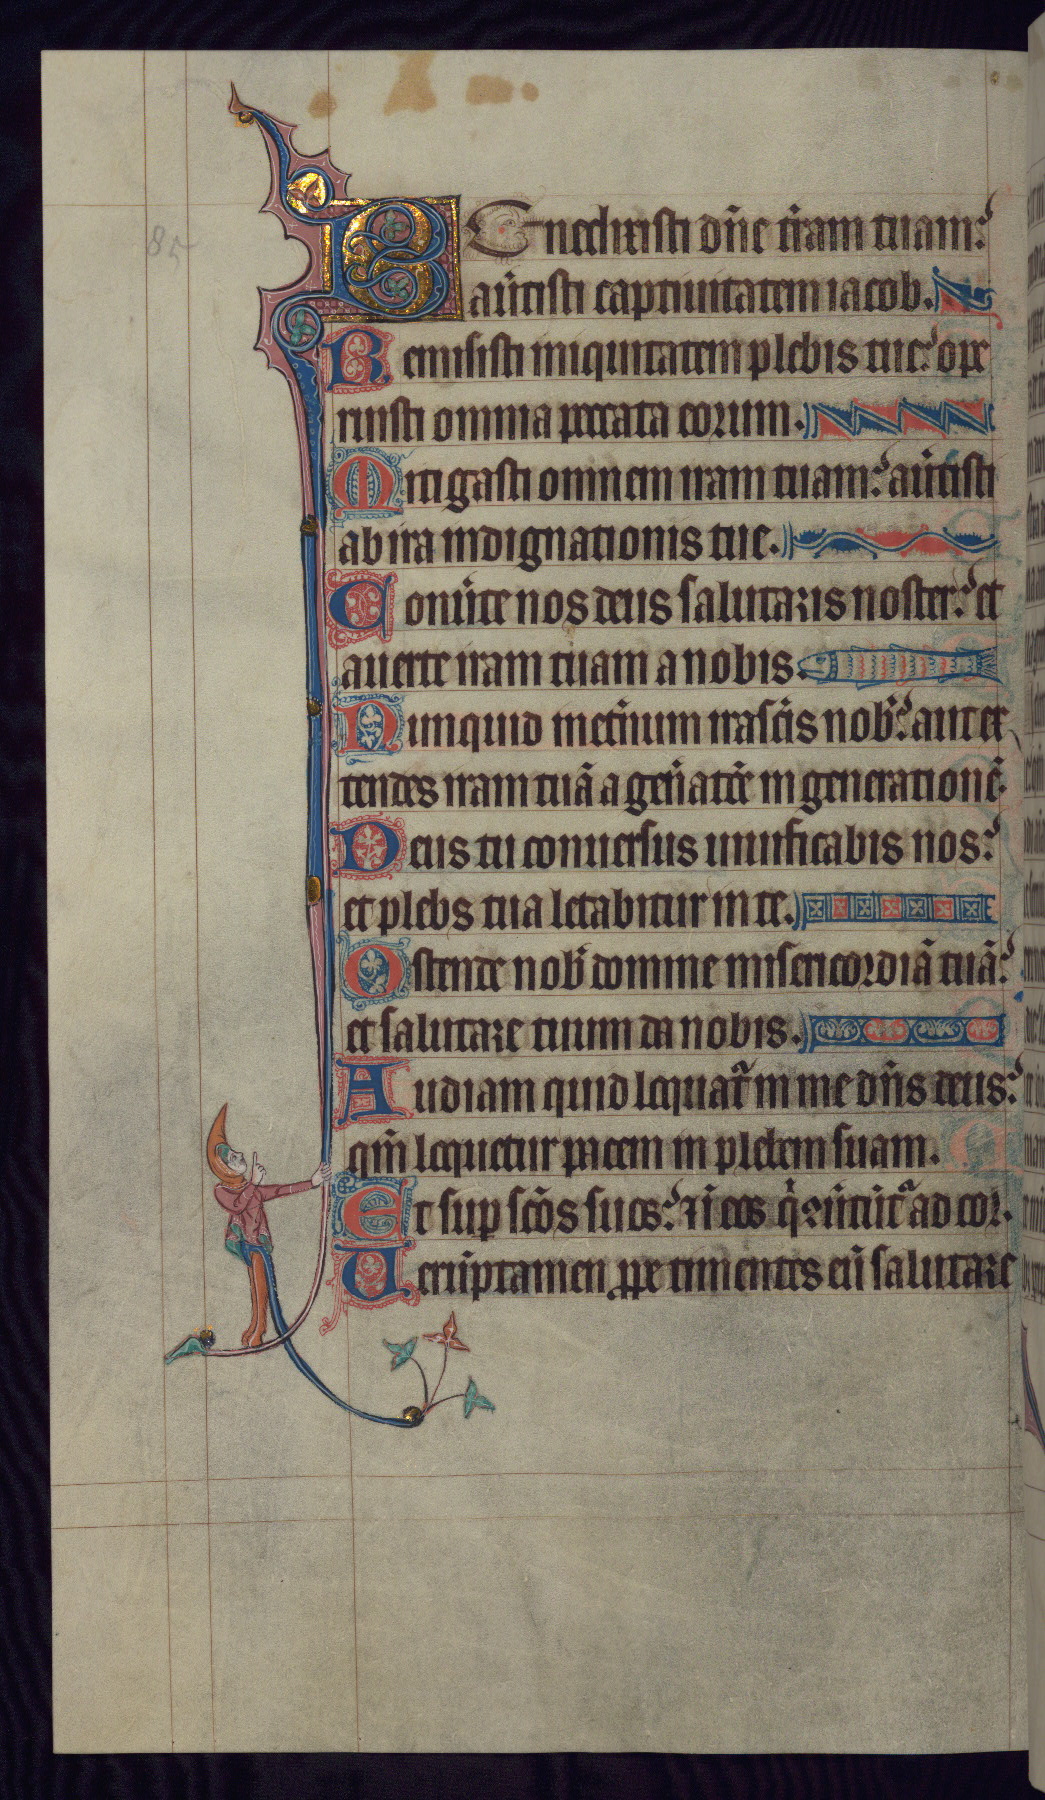 85
Benedixisti dn̄e t̄ram tuam:
au̾tisti captiuitatem iacob.
Remisisti iniquitatem plebis tue: ope
ruisti omnia peccata eorum.
Mitigasti omnem iram tuam: au̾tisti
ab ira indignationis tue.
Conu̾te nos deus salutaris noster: et
auerte iram tuam a nobis.
Numquid inet̾num irasc̾is nob̾: aut ex
tendes iram tuā a gen̾at̾e in generationē.
Deus tu conuersus uiuificabis nos:
et plebs tua letabitur in te.
Ostende nob̾ domine misericordiā tuā:
et salutare tuum da nobis.
Audiam quid loquat̾ in me dn̄s deus:
qm̄ loquetur pacem in plebem suam.
Et sup sc̄os suos: ⁊ ī eos q̾ 9u̾tūt̾ ad cor.
Ueru̾ptamen ꝓpe timentes eū salutare